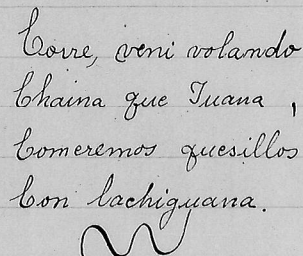 Corre, vení volando
Chaina que Juana,
Comeremos quesillos
Con lachiguana.